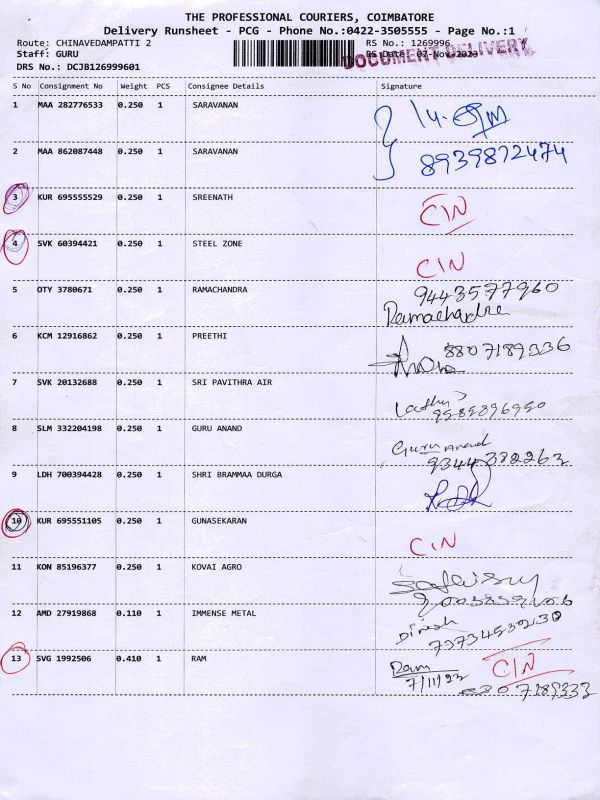 THE PROFESSIONAL COURIERS, COIMBATORE
Delivery Runsheet - PCG - Phone No.:0422-3505555 - Page No.:1
Route: CHINAVEDAMPATTI 2 RS No.: 1269996
Staff: GURU RS Date: 07-Nov-2023
DOCUMENT DELIVERY
DRS No.: DCJB126999601
S No Consignment No Weight PCS Consignee Details Signature
1 MAA 282776533 0.250 1 SARAVANAN
2 MAA 862087448 0.250 1 SARAVANAN 8939872474
3 KUR 695555529 0.250 1 SREENATH CIN
4 SVK 60394421 0.250 1 STEEL ZONE CIN
5 OTY 3780671 0.250 1 RAMACHANDRA 9443577960
Ramachandra
6 KCM 12916862 0.250 1 PREETHI 8807189336
7 SVK 20132688 0.250 1 SRI PAVITHRA AIR
9589896950
8 SLM 332204198 0.250 1 GURU ANAND Guru anand
9344382263
9 LDH 700394428 0.250 1 SHRI BRAMMAA DURGA
10 KUR 695551105 0.250 1 GUNASEKARAN CIN
11 KON 85196377 0.250 1 KOVAI AGRO
12 AMD 27919868 0.110 1 IMMENSE METAL Dinesh
13 SVG 1992506 0.410 1 RAM Ram CIN
7/11/23